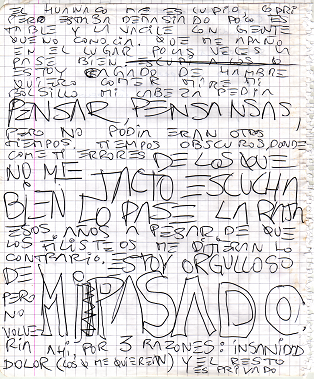 EL HUANACO ME ESCUPIO, QPRI
PERO ESTABA DEMASIADO POCO ES
TABLE Y LA VACILE CON GENTE
QUE NO CONOCIA, QUE ME AMABA
EN EL LUGAR, POCAS VECES LA
PASE BIEN.
ESTOY CANSADO DE HAMBRE
QUIERO COMER, MIRE MI
BOLSILLO MI CABEZA PEDIA
PENSAR, PENSANSAS,
PERO NO PODIA ERAN OTROS
TIEMPOS, TIEMPOS OBSCUROS, DONDE
COMETI ERRORES DE LOS QUE
NO ME JACTO ESCUCHA
BIEN LO PASE LA RAJA
ESOS AÑOS A PESAR DE QUE
LOS FILISTEOS ME DIJERAN LO
CONTRARIO. ESTOY ORGULLOSO
DE MI PASADO,
PERO
NO
VOLVE
RIA AHI, POR 3 RAZONES: INSANIDAD
DOLOR (LOS QUE ME QUIEREN) Y EL RESTO
ES PRIVADO